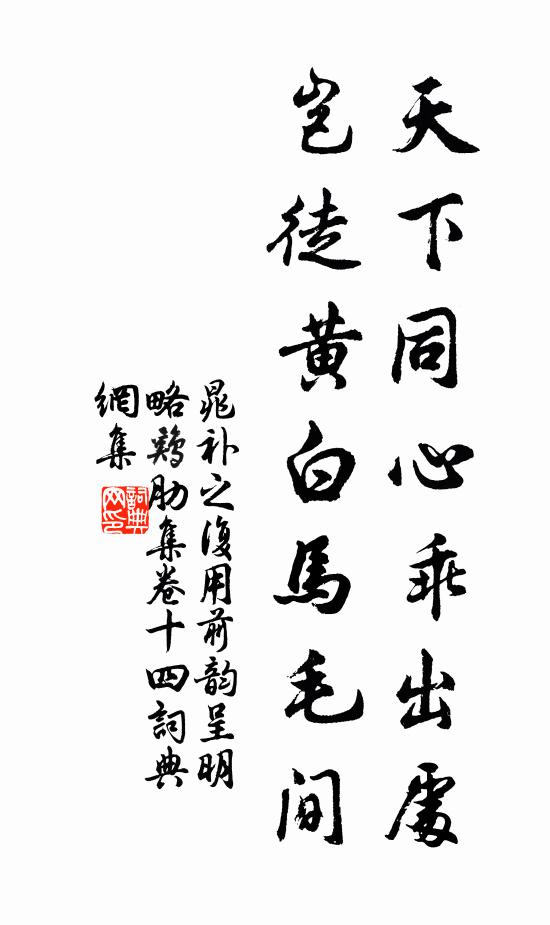 天下同心乖出處
豈徒黃白馬毛間
晁補之復用前韵呈明
略鷄肋集卷十四詞典
網集
詞典
网印